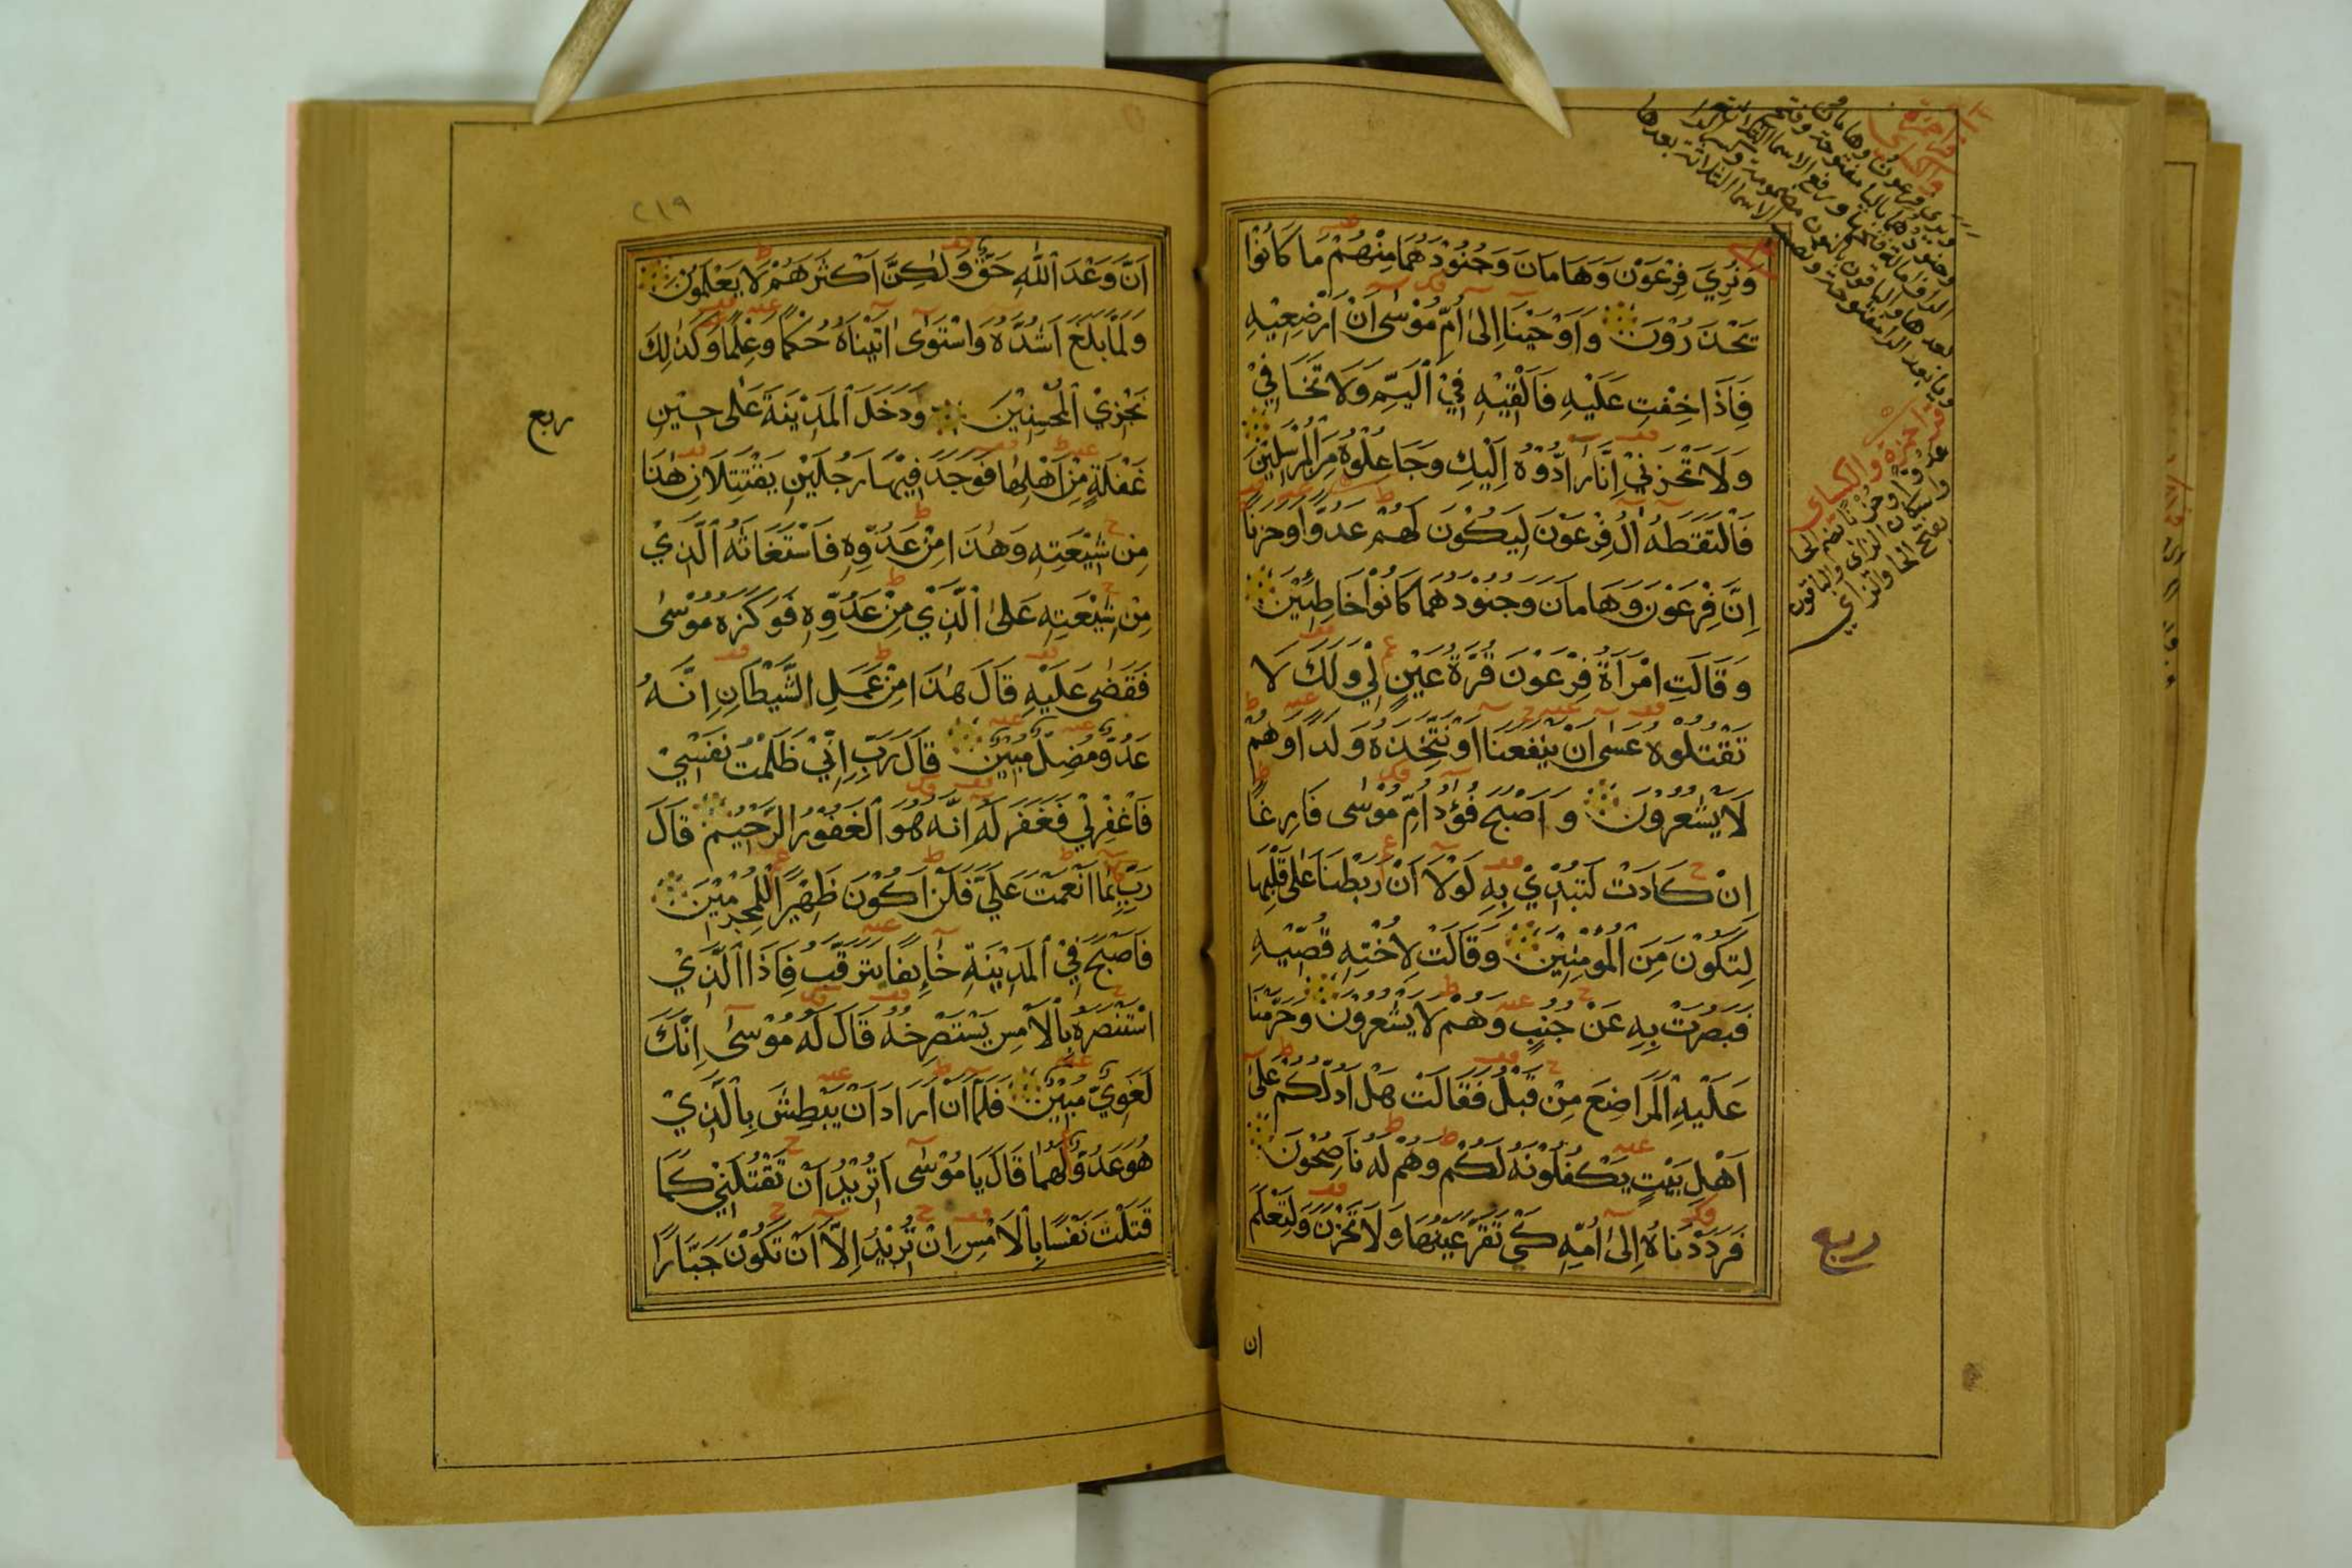 وَنُرِيَ فِرْعَوْنَ وَهَامَانَ وَجُنُودَهُمَا مِنْهُمْ مَا كَانُوْا
يَحْذَرُوْنَ وَاَوْحَيْنَا اِلىٰ اُمِّ مُوْسىٰ اَنْ اَرْضِعِيْهِ
فَاِذَا خِفْتِ عَلَيْهِ فَاَلْقِيْهِ فِيْ الْيَمِّ وَلَا تَخَافِيْ
وَلَا تَحْزَنِيْ اِنَّا رَادُّوْهُ اِلَيْكِ وَجَاعِلُوْهُ مِنَ الْمُرْسَلِيْنَ
فَالْتَقَطَهُ اٰلُ فِرْعَوْنَ لِيَكُوْنَ لَهُمْ عَدُوًّا وَحَزَنًا
اِنَّ فِرْعَوْنَ وَهَامَانَ وَجُنُوْدَهُمَا كَانُوْا خَاطِئِيْنَ
وَقَالَتِ امْرَاَةُ فِرْعَوْنَ قُرَّةُ عَيْنٍ لِيْ وَلَكَ لَا
تَقْتُلُوْهُ عَسٰى اَنْ يَنْفَعَنَا اَوْ نَتَّخِذَهُ وَلَدًا وَهُمْ
لَا يَشْعُرُوْنَ وَاَصْبَحَ فُؤَادُ اُمِّ مُوْسٰى فَارِغًا
اِنْ كَادَتْ لَتُبْدِيْ بِهِ لَوْلَا اَنْ رَبَطْنَا عَلٰى قَلْبِهَا
لِتَكُوْنَ مِنَ الْمُؤْمِنِيْنَ وَقَالَتْ لِاُخْتِهِ قُصِّيْهِ
فَبَصُرَتْ بِهِ عَنْ جُنُبٍ وَهُمْ لَا يَشْعُرُوْنَ وَحَرَّمْنَا
عَلَيْهِ الْمَرَاضِعَ مِنْ قَبْلُ فَقَالَتْ هَلْ اَدُلُّكُمْ عَلٰى
اَهْلِ بَيْتٍ يَكْفُلُوْنَهُ لَكُمْ وَهُمْ لَهُ نَاصِحُوْنَ
فَرَدَدْنَاهُ اِلىٰ اُمِّهِ كَيْ تَقَرَّ عَيْنُهَا وَلَا تَحْزَنَ وَلِتَعْلَمَ
ربع
ان
٢١٩
اَنَّ وَعْدَ اللّٰهِ حَقٌّ وَلٰكِنَّ اَكْثَرَهُمْ لَا يَعْلَمُوْنَ
وَلَمَّا بَلَغَ اَشُدَّهُ وَاسْتَوٰى اٰتَيْنَاهُ حُكْمًا وَعِلْمًا وَكَذٰلِكَ
نَجْزِيْ الْمُحْسِنِيْنَ وَدَخَلَ الْمَدِيْنَةَ عَلٰى حِيْنِ
ربع
غَفْلَةٍ مِنْ اَهْلِهَا فَوَجَدَ فِيْهَا رَجُلَيْنِ يَقْتَتِلَانِ هٰذَا
مِنْ شِيْعَتِهِ وَهٰذَا مِنْ عَدُوِّهِ فَاسْتَغَاثَهُ الَّذِيْ
مِنْ شِيْعَتِهِ عَلَى الَّذِيْ مِنْ عَدُوِّهِ فَوَكَزَهُ مُوْسٰى
فَقَضٰى عَلَيْهِ قَالَ هٰذَا مِنْ عَمَلِ الشَّيْطَانِ اِنَّهُ
عَدُوٌّ مُضِلٌّ مُبِيْنٌ قَالَ رَبِّ اِنِّيْ ظَلَمْتُ نَفْسِيْ
فَاغْفِرْ لِيْ فَغَفَرَ لَهُ اِنَّهُ هُوَ الْغَفُوْرُ الرَّحِيْمُ قَالَ
رَبِّ بِمَا اَنْعَمْتَ عَلَيَّ فَلَنْ اَكُوْنَ ظَهِيْرًا لِلْمُجْرِمِيْنَ
فَاَصْبَحَ فِيْ الْمَدِيْنَةِ خَائِفًا يَتَرَقَّبُ فَاِذَا الَّذِيْ
اسْتَنْصَرَهُ بِالْاَمْسِ يَسْتَصْرِخُهُ قَالَ لَهُ مُوْسٰى اِنَّكَ
لَغَوِيٌّ مُبِيْنٌ فَلَمَّا اَنْ اَرَادَ اَنْ يَبْطِشَ بِالَّذِيْ
هُوَ عَدُوٌّ لَهُمَا قَالَ يَا مُوْسٰى اَتُرِيْدُ اَنْ تَقْتُلَنِيْ كَمَا
قَتَلْتَ نَفْسًا بِالْاَمْسِ اِنْ تُرِيْدُ اِلَّا اَنْ تَكُوْنَ جَبَّارًا